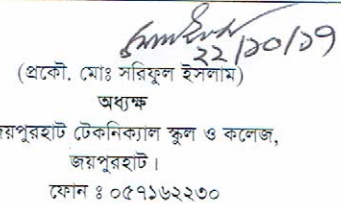 ২২/১০/১৭
(প্রকৌ. মোঃ সরিফুল ইসলাম)
অধ্যক্ষ
টেকনিক্যাল স্কুল ও কলেজ,
জয়পুরহাট।
ফোন ঃ ০৫৭১৬২২৩০